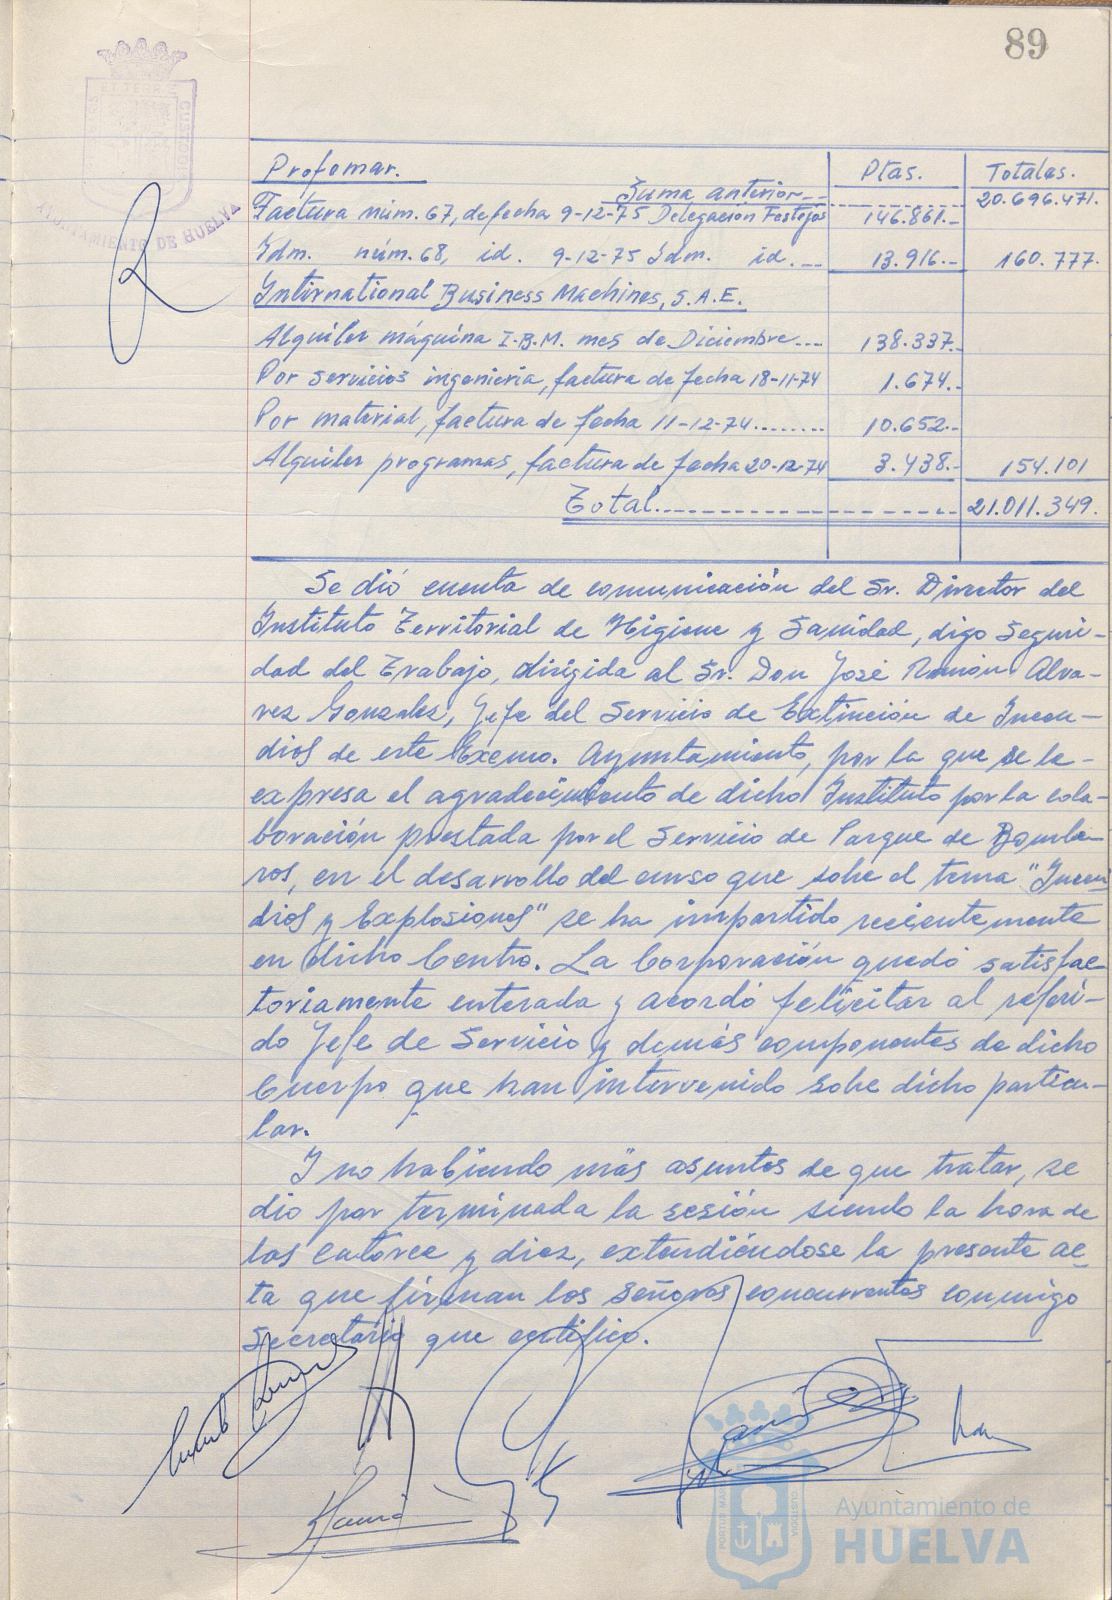 89
AYUNTAMIENTO DE HUELVA
Profomar. Ptas. Totales.
Suma anterior 20.696.471.
Factura núm. 67, de fecha 9-12-75 Delegación Festejos 146.861.-
Idm. núm. 68, id. 9-12-75 Idm. id.-- 13.916.- 160.777.
International Business Machines, S.A.E.
Alquiler máquina I.B.M. mes de Diciembre.... 138.337.-
Por servicios ingenieria, factura de fecha 18-11-74 1.674.-
Por material, factura de fecha 11-12-74........ 10.652.-
Alquiler programas, factura de fecha 20-12-74 3.438.- 154.101
Total.------------------ 21.011.349.
Se dió cuenta de comunicación del Sr. Director del
Instituto Territorial de Higiene y Sanidad, digo Seguri-
dad del Trabajo, dirigida al Sr. Don José Ramón Alva-
rez Gonzalez, Jefe del Servicio de Extinción de Incen-
dios de este Excmo. Ayuntamiento, por la que se le-
expresa el agradecimiento de dicho Instituto por la cola-
boración prestada por el Servicio de Parque de Bombe-
ros, en el desarrollo del curso que sobe el tema "Incen-
dios y Explosiones" se ha impartido recientemente
en dicho Centro. La Corporación quedó satisfac-
toriamente enterada y acordó felicitar al referi-
do Jefe de Servicio y demás componentes de dicho
Cuerpo que han intervenido sobe dicho particu-
lar.
I no habiendo más asuntos de que tratar, se
dio por terminada la sesión siendo la hora de
las catorce y diez, extendiéndose la presente ac-
ta que firman los señores concurrentes conmigo
Secretario que certifico.
Ayuntamiento de
HUELVA